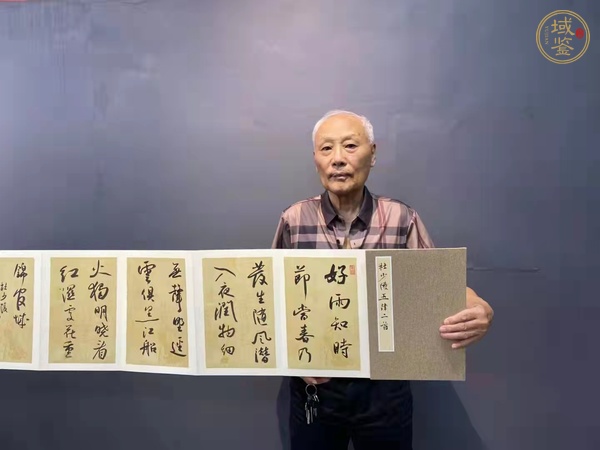 域鉴
杜少陵五律二首
好雨知時
節當春乃
發生隨風潛
入夜潤物細
無聲野徑
雲俱黑江船
火獨明曉看
紅濕處花重
錦官城
杜少陵